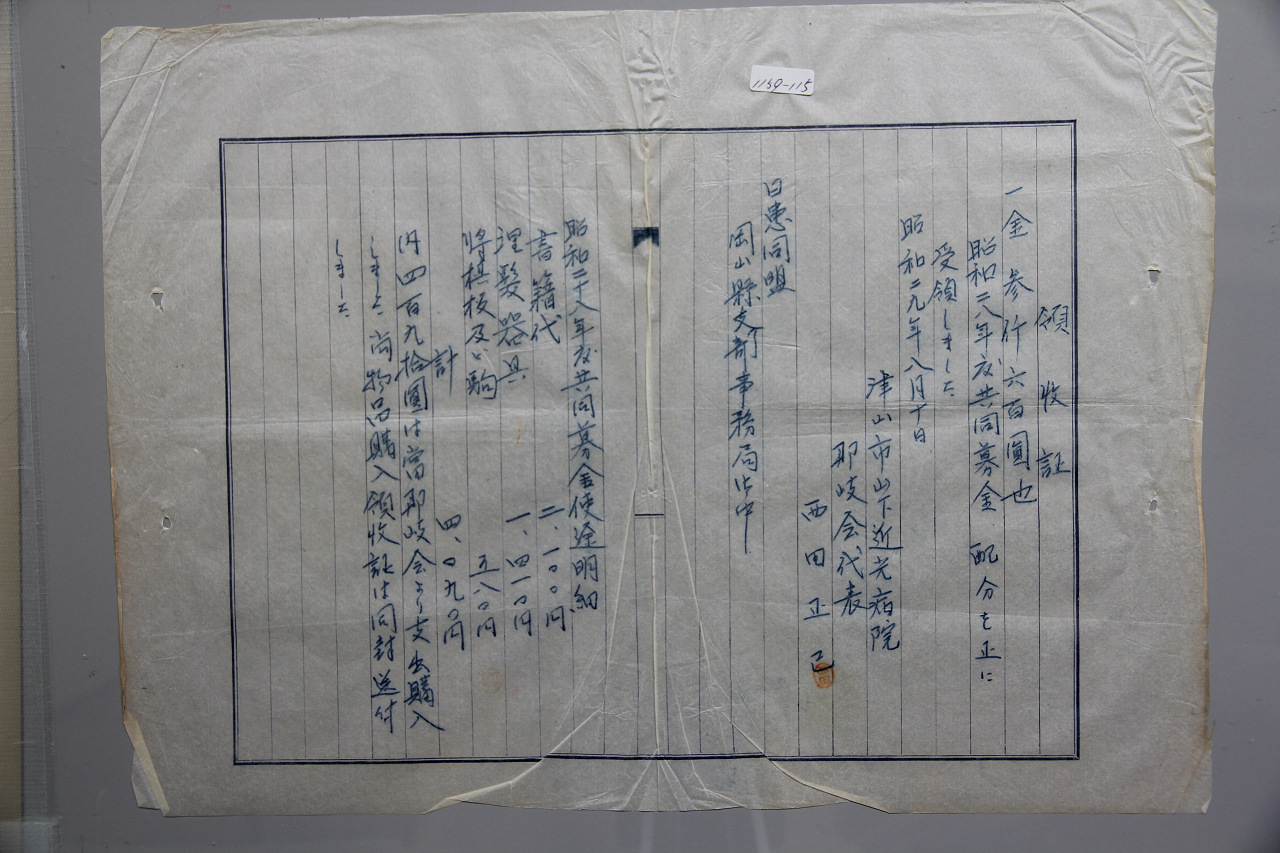 1159-115
領収証
一金参仟六百圓也
昭和二八年度共同募金配分を正に
受領しました
昭和二九年八月十日
津山市山下近光病院
耶岐会代表
西田正己
日患同盟
岡山縣支部事務局御中
昭和二十八年度共同募金使途明細
書籍代 二、一〇〇円
理髪器具 一、四一〇円
将棋板及ビ駒 五八〇円
計 四、〇九〇円
内四百九拾圓は當耶岐会より支出購入
しました 尚物品購入領收証は同封送付
しました